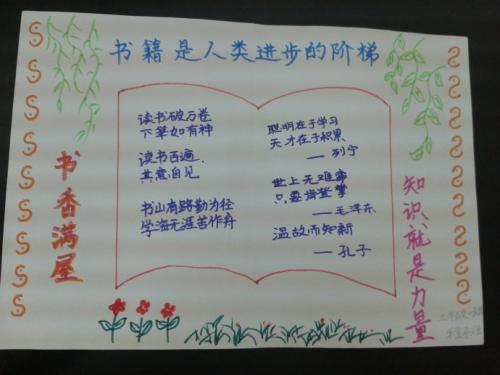 书籍是人类进步的阶梯
书香满屋
读书破万卷
下笔如有神
读书百遍
其意自见
书山有路勤为径
学海无涯苦作舟
聪明在于学习
天才在于积累
—列宁
世上无难事
只要肯登攀
—毛泽东
温故而知新
—孔子
知识就是力量